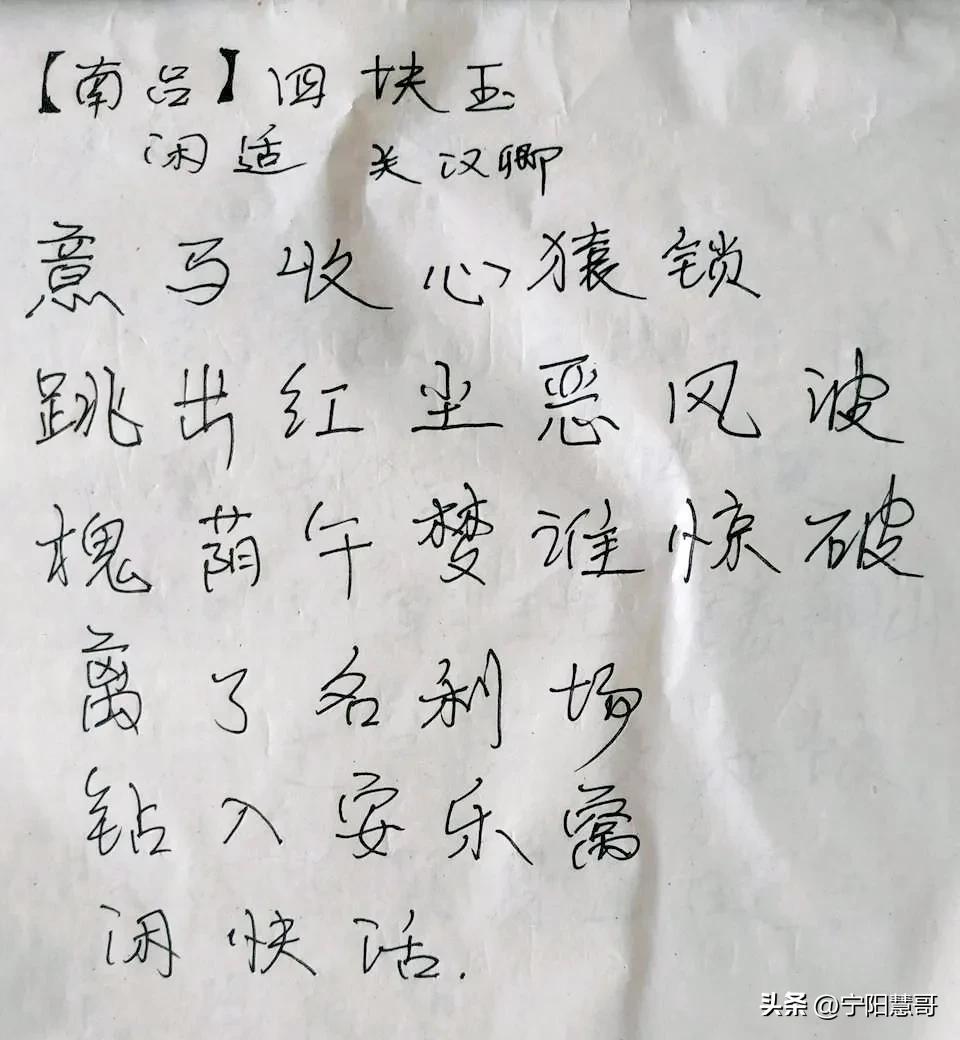 【南吕】四块玉
闲适 关汉卿
意马收心猿锁
跳出红尘恶风波
槐荫午梦谁惊破
离了名利场
钻入安乐窝
闲快活.
头条 @宁阳慧哥